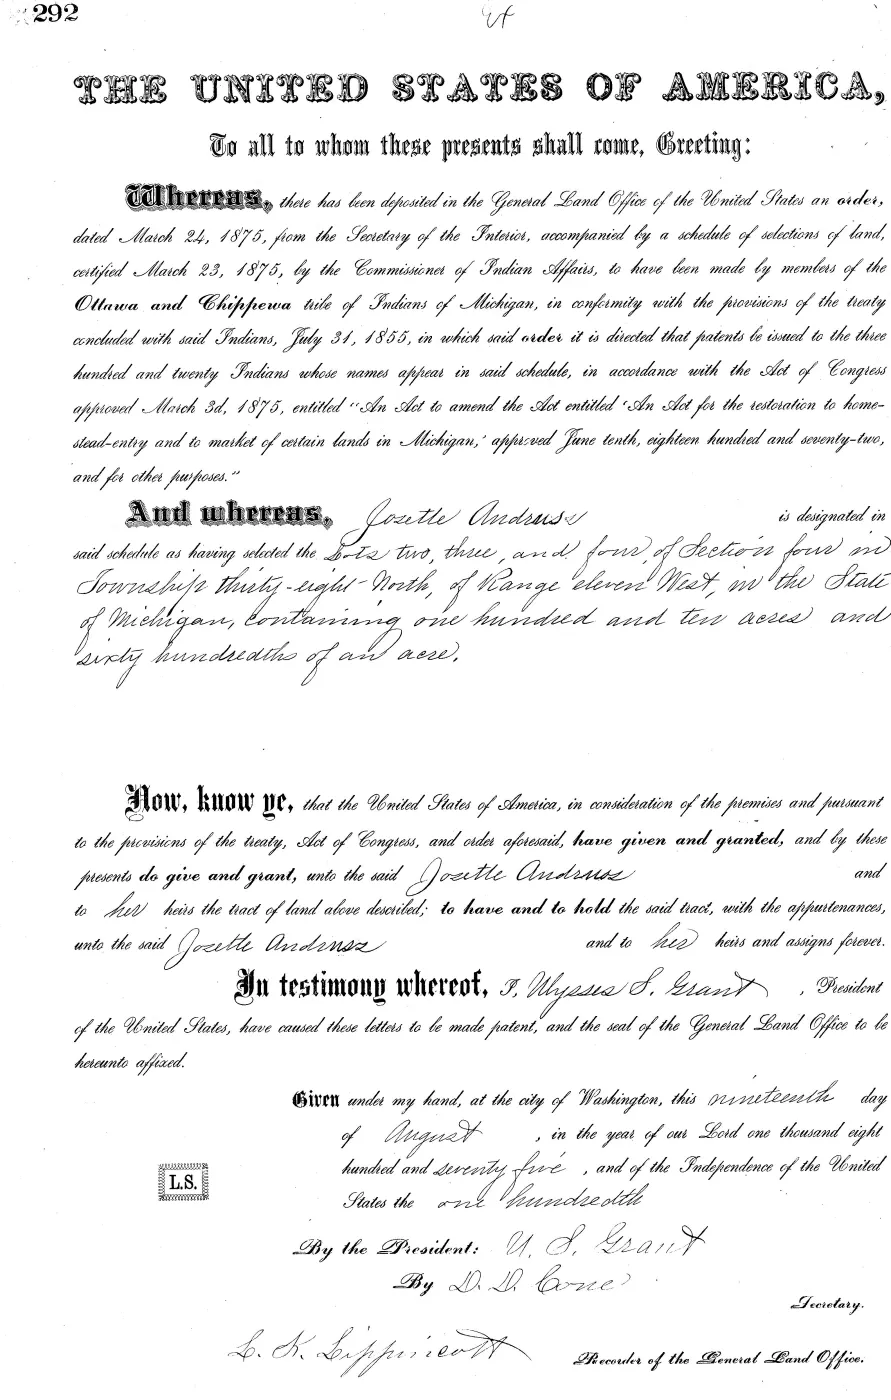 292
THE UNITED STATES OF AMERICA,
To all to whom these presents shall come, Greeting:
Whereas, there has been deposited in the General Land Office of the United States an order,
dated March 24, 1875, from the Secretary of the Interior, accompanied by a schedule of selections of land,
certified March 23, 1875, by the Commissioner of Indian Affairs, to have been made by members of the
Ottawa and Chippewa tribe of Indians of Michigan, in conformity with the provisions of the treaty
concluded with said Indians, July 31, 1855, in which said order it is directed that patents be issued to the three
hundred and twenty Indians whose names appear in said schedule, in accordance with the Act of Congress
approved March 3d, 1875, entitled "An Act to amend the Act entitled 'An Act for the restoration to home-
stead-entry and to market of certain lands in Michigan,' approved June tenth, eighteen hundred and seventy-two,
and for other purposes."
And whereas, Josette Andruss is designated in
said schedule as having selected the Lots two, three, and four, of Section four in
Township thirty-eight North, of Range eleven West, in the State
of Michigan, containing one hundred and ten acres and
sixty hundredths of an acre.
Now, know ye, that the United States of America, in consideration of the premises and pursuant
to the provisions of the treaty, Act of Congress, and order aforesaid, have given and granted, and by these
presents do give and grant, unto the said Josette Andruss and
to her heirs the tract of land above described; to have and to hold the said tract, with the appurtenances,
unto the said Josette Andruss and to her heirs and assigns forever.
In testimony whereof, I, Ulysses S. Grant, President
of the United States, have caused these letters to be made patent, and the seal of the General Land Office to be
hereunto affixed.
Given under my hand, at the city of Washington, this nineteenth day
of August, in the year of our Lord one thousand eight
hundred and seventy five, and of the Independence of the United
States the one hundredth
L.S.
By the President: U. S. Grant
By D. D. Cone
Secretary.
L. K. Lippincott
Recorder of the General Land Office.